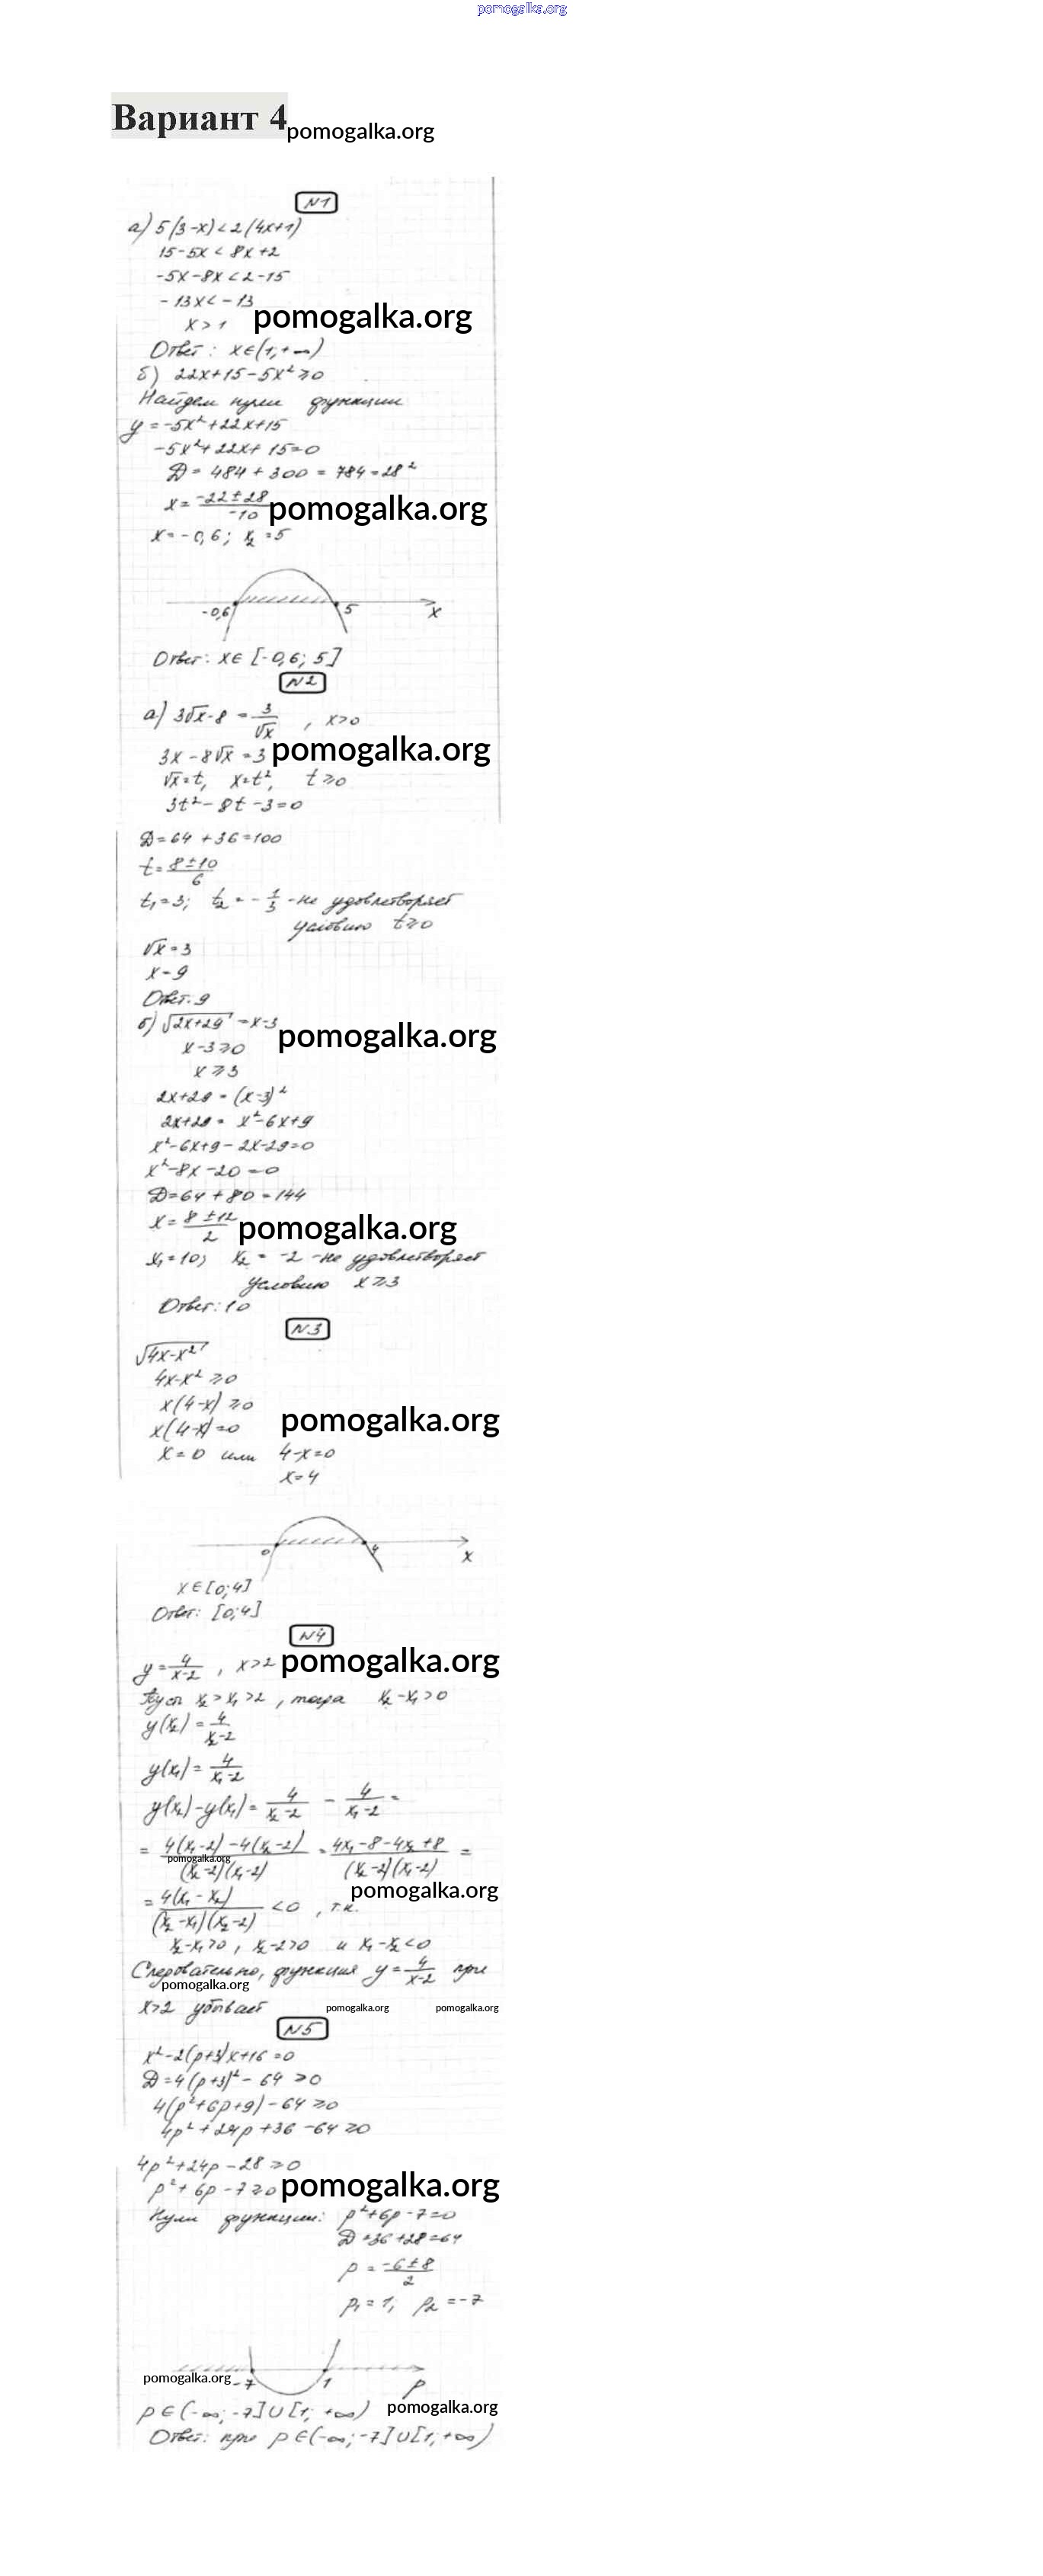 pomogalka.org
Вариант 4
pomogalka.org
N1
а) 5(3-x)<2(4x+1)
15-5x<8x+2
-5x-8x<2-15
-13x<-13
pomogalka.org
x>1
Ответ: x∈(1;+∞)
б) 22x+15-5x²≥0
Найдем нули функции
y=-5x²+22x+15
-5x²+22x+15=0
D=484+300=784=28²
x=(-22±28)/-10
pomogalka.org
x=-0,6; x₂=5
-0,6 5 x
Ответ: x∈[-0,6; 5]
N2
а) 3√x-8=3/√x, x>0
3x-8√x=3
pomogalka.org
√x=t, x=t², t≥0
3t²-8t-3=0
D=64+36=100
t=(8±10)/6
t₁=3; t₂=-1/3 -не удовлетворяет
условию t≥0
√x=3
x=9
Ответ: 9
б) √(2x+29)=x-3
pomogalka.org
x-3≥0
x≥3
2x+29=(x-3)²
2x+29=x²-6x+9
x²-6x+9-2x-29=0
x²-8x-20=0
D=64+80=144
x=(8±12)/2
pomogalka.org
x₁=10; x₂=-2 -не удовлетворяет
условию x≥3
Ответ: 10
N3
√(4x-x²)
4x-x²≥0
x(4-x)≥0
x(4-x)=0
pomogalka.org
x=0 или 4-x=0
x=4
0 4 x
x∈[0;4]
Ответ: [0;4]
N4
y=4/(x-2), x>2
pomogalka.org
Пусть x₂>x₁>2, тогда x₂-x₁>0
y(x₂)=4/(x₂-2)
y(x₁)=4/(x₁-2)
y(x₂)-y(x₁)=4/(x₂-2)-4/(x₁-2)=
=(4(x₁-2)-4(x₂-2))/((x₂-2)(x₁-2))=(4x₁-8-4x₂+8)/((x₂-2)(x₁-2))=
pomogalka.org
pomogalka.org
=4(x₁-x₂)/((x₂-x₁)(x₂-2))<0, т.к.
x₂-x₁>0, x₂-2>0 и x₁-x₂<0
Следовательно, функция y=4/(x-2) при
pomogalka.org
x>2 убывает
pomogalka.org pomogalka.org
N5
x²-2(p+3)x+16=0
D=4(p+3)²-64≥0
4(p²+6p+9)-64≥0
4p²+24p+36-64≥0
4p²+24p-28≥0
p²+6p-7≥0
pomogalka.org
Нули функции: p²+6p-7=0
D=36+28=64
p=(-6±8)/2
p₁=1; p₂=-7
pomogalka.org
-7 1 p
p∈(-∞;-7]∪[1;+∞)
pomogalka.org
Ответ: при p∈(-∞;-7]∪[1;+∞)